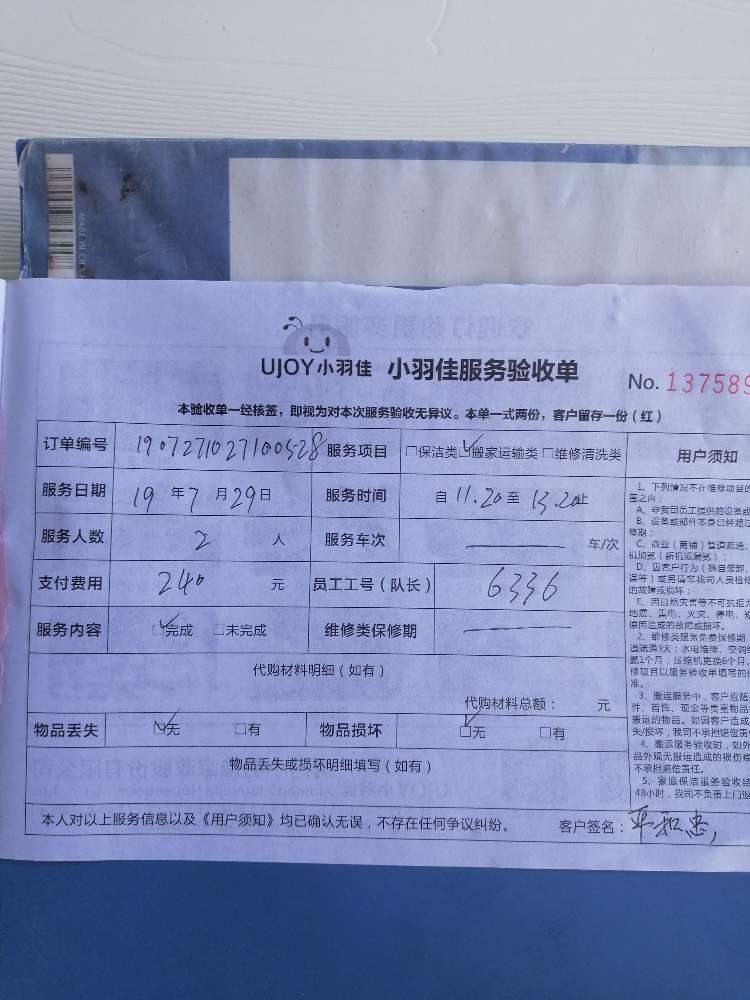 UJOY小羽佳 小羽佳服务验收单
No. 137589
本验收单一经核签，即视为对本次服务验收无异议。本单一式两份，客户留存一份（红）
订单编号 服务项目 □保洁类 ☑搬家运输类 □维修清洗类 用户须知
服务日期 19 年 7 月 29 日 服务时间 自 11.20 至 13.20止
服务人数 2 人 服务车次 车/次
支付费用 240 元 员工工号（队长） 6336
服务内容 ☑完成 □未完成 维修类保修期
代购材料明细（如有）
代购材料总额： 元
物品丢失 ☑无 □有 物品损坏 ☑无 □有
物品丢失或损坏明细填写（如有）
本人对以上服务信息以及《用户须知》均已确认无误，不存在任何争议纠纷。 客户签名：
1、下列情况不在维修项目的
围之内：
A、非我司员工提供的设备或
B、设备或部件本身已经超过
修期；
C、商业（商铺）管道疏通、
机加氨（新机或漏氨）；
D、因客户行为（擅自装卸、
误等）或另请非我司人员检修
的故障或损坏；
E、因自然灾害等不可抗拒力
地震、雷电、火灾、停电、
原因造成的故障或损坏。
2、维修类服务免费保修期
道疏通3天；水电维修、空调
氨1个月；压缩机更换6个月。
修项目以服务验收单填写的
准。
3、搬运服务中，客户应随
件、首饰、现金等贵重物品
搬运的物品。如因客户造成
失/损坏，我司不承担赔偿责
4、搬运服务验收时，如外
品外观无搬运造成的损伤
不承担赔偿责任。
5、家庭保洁服务验收结
48小时，我司不负责上门返